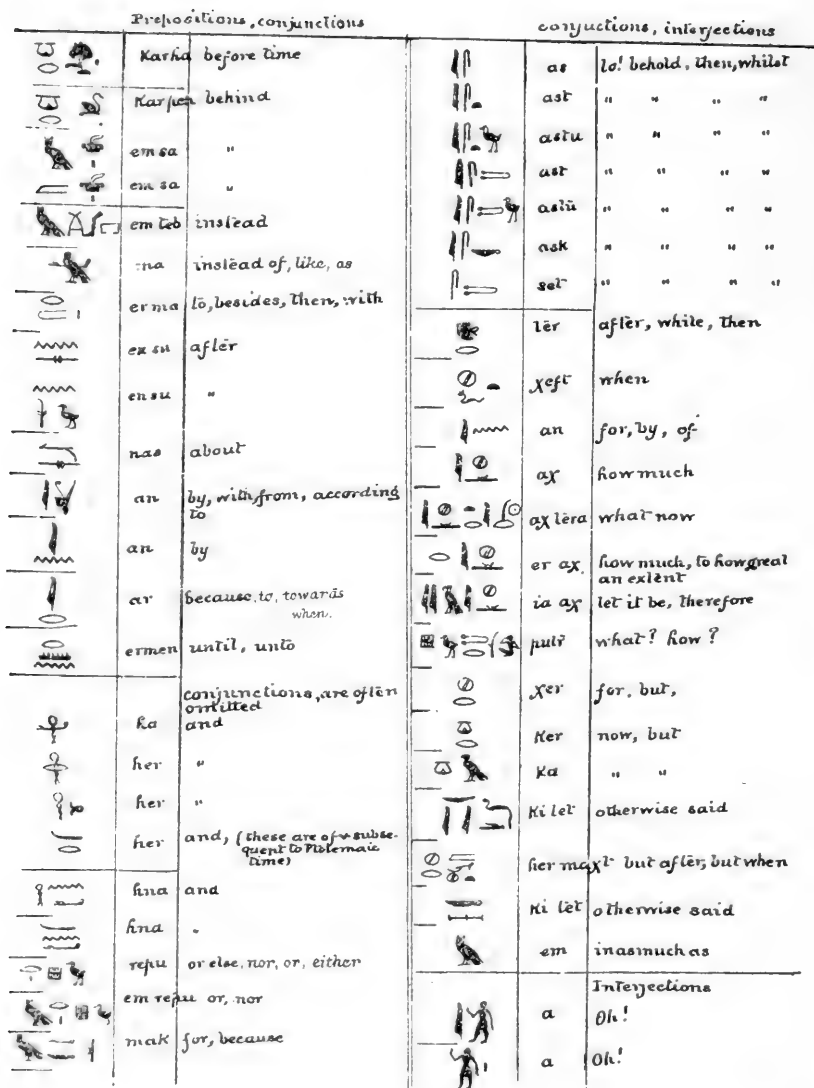 Prepositions, conjunctions
Karha before time
Karpeh behind
em sa "
em sa "
em teb instead
ma instead of, like, as
er ma to, besides, then, with
en su after
en su "
nas about
an by, with, from, according
to
an by
ar because, to, towards
when.
ermen until, unto
conjunctions, are often
omitted
ha and
her "
her "
her and, (these are of & subse-
quent to Ptolemaic
time)
hna and
hna "
repu or else, nor, or, either
em repu or, nor
mak for, because
conjuctions, interjections
as lo! behold, then, whilst
ast " " " "
astu " " " "
ast " " " "
astu " " " "
ask " " " "
set " " " "
ter after, while, then
χeft when
an for, by, of
aχ how much
aχ tera what now
er aχ how much, to how great
an extent
ia aχ let it be, therefore
putr what? how?
χer for, but,
Ker now, but
Ka " "
Ki tet otherwise said
her maχt but after, but when
Ki tet otherwise said
em inasmuch as
Interjections
a Oh!
a Oh!